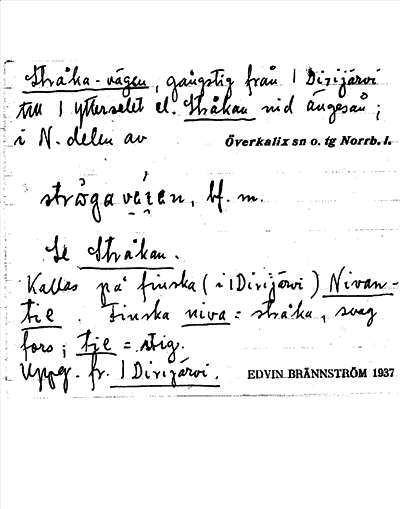 Stråka-vägen, gångstig från 1 Dirijärvi
till 1 ytterselet el. Stråkan vid ängeså;
i N. delen av Överkalix sn o. tg Norrb. l.
strågavä́ien, bf. m.
Se Stråkan.
Kallas på finska (i 1 Dirijärvi) Nivan-
tie. Finska niva = stråka, svag
fors; tie = stig.
Uppg. fr. 1 Dirijärvi. EDVIN BRÄNNSTRÖM 1937